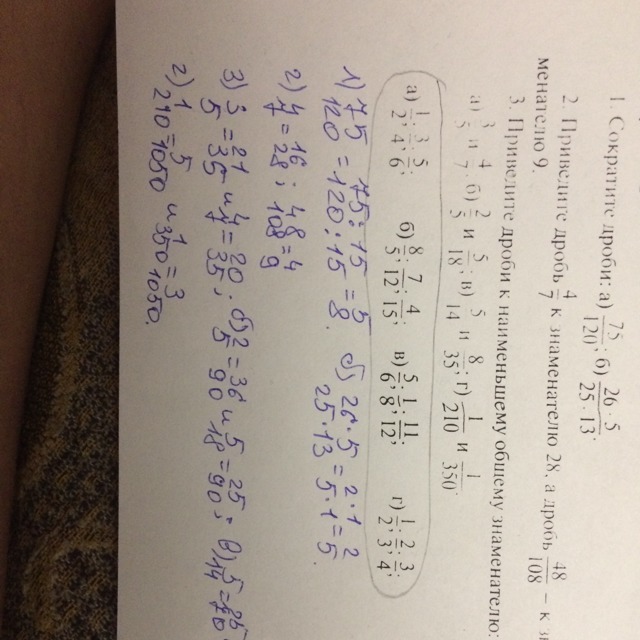 1. Сократите дроби: а) 75/120; б) 26·5/25·13;
2. Приведите дробь 4/7 к знаменателю 28, а дробь 48/108 – к зн
менателю 9.
3. Приведите дроби к наименьшему общему знаменателю:
а) 3/5 и 4/7; б) 2/5 и 5/18; в) 5/14 и 8/35; г) 1/210 и 1/350.
а) 1/2; 3/4; 5/6; б) 8/5; 7/12; 4/15; в) 5/6; 1/8; 11/12; г) 1/2; 2/3; 3/4;
1) 75/120 = 75:15/120:15 = 5/8. б) 26·5/25·13 = 2·1/5·1 = 2/5.
2) 4/7 = 16/28; 48/108 = 4/9
3) 3/5 = 21/35 и 4/7 = 20/35; б) 2/5 = 36/90 и 5/18 = 25/90; в) 5/14 = 25/70
г) 1/210 = 5/1050 и 1/350 = 3/1050.